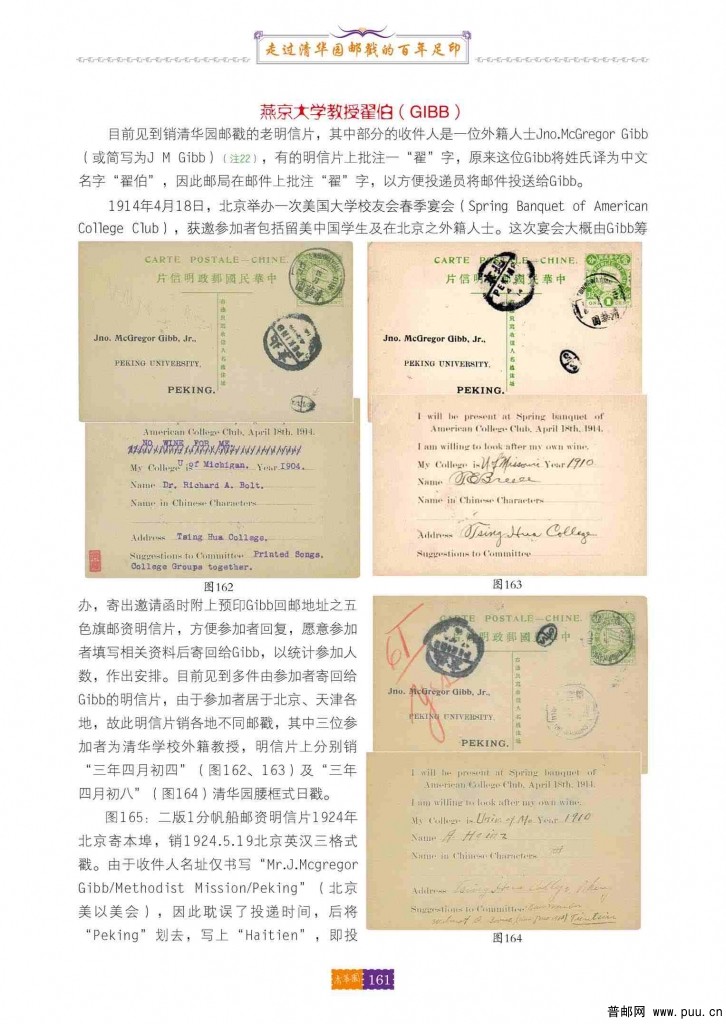 走过清华园邮戳的百年足印
燕京大学教授翟伯（GIBB）
目前见到销清华园邮戳的老明信片，其中部分的收件人是一位外籍人士Jno.McGregor Gibb
（或简写为J M Gibb）（注22），有的明信片上批注一“翟”字，原来这位Gibb将姓氏译为中文
名字“翟伯”，因此邮局在邮件上批注“翟”字，以方便投递员将邮件投送给Gibb。
1914年4月18日，北京举办一次美国大学校友会春季宴会（Spring Banquet of American
College Club），获邀参加者包括留美中国学生及在北京之外籍人士。这次宴会大概由Gibb筹
CARTE POSTALE—CHINE.
片信明政郵國民華中
Jno. McGregor Gibb, Jr.,
PEKING UNIVERSITY,
PEKING.
PEKING
American College Club, April 18th, 1914.
NO WINE FOR ME.
My College is U of Michigan. Year 1904.
Name Dr. Richard A. Bolt.
Name in Chinese Characters
Address Tsing Hua College.
Suggestions to Committee Printed Songs.
College Groups together.
图162
CARTE POSTALE—CHINE.
片信明政郵國民華中
Jno. McGregor Gibb, Jr.,
PEKING UNIVERSITY,
PEKING.
PEKING
I will be present at Spring banquet of
American College Club, April 18th, 1914.
I am willing to look after my own wine.
My College is U of Missouri Year 1910
Name
Name in Chinese Characters
Address Tsing Hua College
Suggestions to Committee
图163
办，寄出邀请函时附上预印Gibb回邮地址之五
色旗邮资明信片，方便参加者回复，愿意参加
者填写相关资料后寄回给Gibb，以统计参加人
数，作出安排。目前见到多件由参加者寄回给
Gibb的明信片，由于参加者居于北京、天津各
地，故此明信片销各地不同邮戳，其中三位参
加者为清华学校外籍教授，明信片上分别销
“三年四月初四”（图162、163）及“三年
四月初八”（图164）清华园腰框式日戳。
图165：二版1分帆船邮资明信片1924年
北京寄本埠，销1924.5.19北京英汉三格式
戳。由于收件人名址仅书写“Mr.J.Mcgregor
Gibb/Methodist Mission/Peking”（北京
美以美会），因此耽误了投递时间，后将
“Peking”划去，写上“Haitien”，即投
CARTE POSTALE—CHINE.
片信明政郵國民華中
Jno. McGregor Gibb, Jr.,
PEKING UNIVERSITY,
PEKING.
I will be present at Spring banquet of
American College Club, April 18th, 1914.
I am willing to look after my own wine.
My College is Univ of Mo Year 1910
Name
Name in Chinese Characters
Address Tsing Hua College
Suggestions to Committee
图164
161
普邮网 www.puu.cn